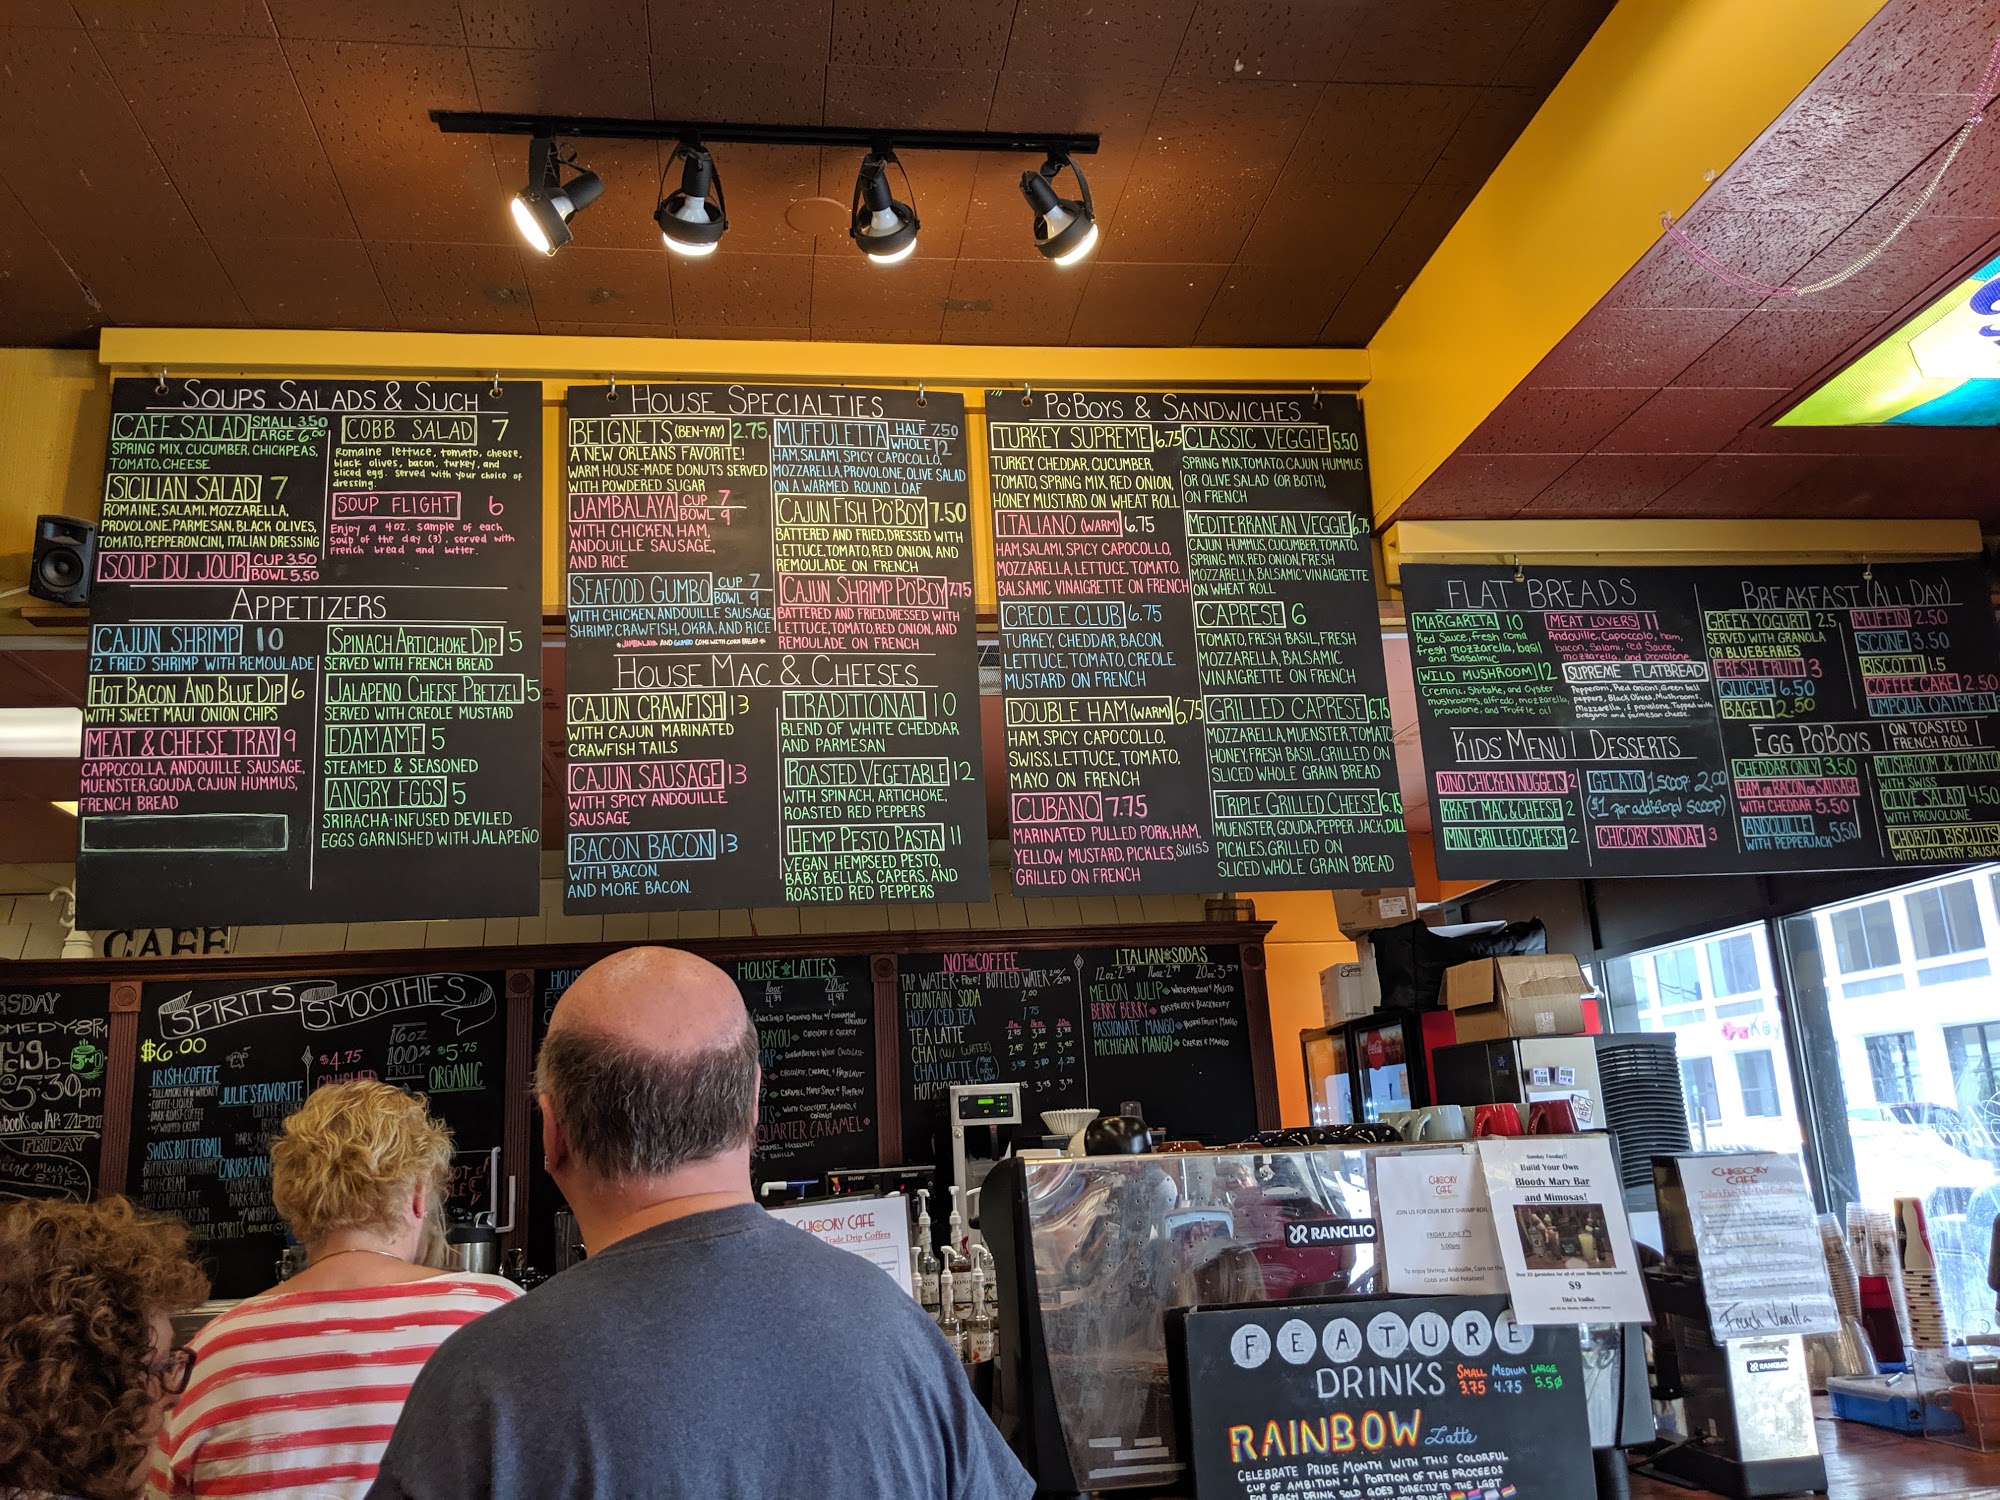 SOUPS SALADS & SUCH
CAFE SALAD SMALL 3.50
LARGE 6.00
SPRING MIX, CUCUMBER, CHICKPEAS,
TOMATO, CHEESE
SICILIAN SALAD 7
ROMAINE, SALAMI, MOZZARELLA,
PROVOLONE, PARMESAN, BLACK OLIVES,
TOMATO, PEPPERONCINI, ITALIAN DRESSING
SOUP DU JOUR CUP 3.50
BOWL 5.50
COBB SALAD 7
Romaine lettuce, tomato, cheese,
black olives, bacon, turkey, and
sliced egg. served with your choice of
dressing.
SOUP FLIGHT 6
Enjoy a 4oz. sample of each
soup of the day (3). served with
French bread and butter.
APPETIZERS
CAJUN SHRIMP 10
12 FRIED SHRIMP WITH REMOULADE
HOT BACON AND BLUE DIP 6
WITH SWEET MAUI ONION CHIPS
MEAT & CHEESE TRAY 9
CAPPOCOLLA, ANDOUILLE SAUSAGE,
MUENSTER, GOUDA, CAJUN HUMMUS,
FRENCH BREAD
SPINACH ARTICHOKE DIP 5
SERVED WITH FRENCH BREAD
JALAPENO CHEESE PRETZEL 5
SERVED WITH CREOLE MUSTARD
EDAMAME 5
STEAMED & SEASONED
ANGRY EGGS 5
SRIRACHA-INFUSED DEVILED
EGGS GARNISHED WITH JALAPEÑO
HOUSE SPECIALTIES
BEIGNETS (BEN-YAY) 2.75
A NEW ORLEANS FAVORITE!
WARM HOUSE-MADE DONUTS SERVED
WITH POWDERED SUGAR
JAMBALAYA CUP 7
BOWL 9
WITH CHICKEN, HAM,
ANDOUILLE SAUSAGE,
AND RICE
SEAFOOD GUMBO CUP 7
BOWL 9
WITH CHICKEN, ANDOUILLE SAUSAGE,
SHRIMP, CRAWFISH, OKRA, AND RICE
* JAMBALAYA AND GUMBO COME WITH CORN BREAD *
MUFFULETTA HALF 7.50
WHOLE 12
HAM, SALAMI, SPICY CAPOCOLLO,
MOZZARELLA, PROVOLONE, OLIVE SALAD
ON A WARMED ROUND LOAF
CAJUN FISH PO'BOY 7.50
BATTERED AND FRIED, DRESSED WITH
LETTUCE, TOMATO, RED ONION, AND
REMOULADE ON FRENCH
CAJUN SHRIMP PO'BOY 7.75
BATTERED AND FRIED, DRESSED WITH
LETTUCE, TOMATO, RED ONION, AND
REMOULADE ON FRENCH
HOUSE MAC & CHEESES
CAJUN CRAWFISH 13
WITH CAJUN MARINATED
CRAWFISH TAILS
CAJUN SAUSAGE 13
WITH SPICY ANDOUILLE
SAUSAGE
BACON BACON 13
WITH BACON.
AND MORE BACON.
TRADITIONAL 10
BLEND OF WHITE CHEDDAR
AND PARMESAN
ROASTED VEGETABLE 12
WITH SPINACH, ARTICHOKE,
ROASTED RED PEPPERS
HEMP PESTO PASTA 11
VEGAN HEMPSEED PESTO,
BABY BELLAS, CAPERS, AND
ROASTED RED PEPPERS
PO'BOYS & SANDWICHES
TURKEY SUPREME 6.75
TURKEY, CHEDDAR, CUCUMBER,
TOMATO, SPRING MIX, RED ONION,
HONEY MUSTARD ON WHEAT ROLL
ITALIANO (WARM) 6.75
HAM, SALAMI, SPICY CAPOCOLLO,
MOZZARELLA, LETTUCE, TOMATO,
BALSAMIC VINAIGRETTE ON FRENCH
CREOLE CLUB 6.75
TURKEY, CHEDDAR, BACON,
LETTUCE, TOMATO, CREOLE
MUSTARD ON FRENCH
DOUBLE HAM (WARM) 6.75
HAM, SPICY CAPOCOLLO,
SWISS, LETTUCE, TOMATO,
MAYO ON FRENCH
CUBANO 7.75
MARINATED PULLED PORK, HAM,
YELLOW MUSTARD, PICKLES, SWISS
GRILLED ON FRENCH
CLASSIC VEGGIE 5.50
SPRING MIX, TOMATO, CAJUN HUMMUS
OR OLIVE SALAD (OR BOTH),
ON FRENCH
MEDITERRANEAN VEGGIE 6.75
CAJUN HUMMUS, CUCUMBER, TOMATO,
SPRING MIX, RED ONION, FRESH
MOZZARELLA, BALSAMIC VINAIGRETTE
ON WHEAT ROLL
CAPRESE 6
TOMATO, FRESH BASIL, FRESH
MOZZARELLA, BALSAMIC
VINAIGRETTE ON FRENCH
GRILLED CAPRESE 6.75
MOZZARELLA, MUENSTER, TOMATO
HONEY, FRESH BASIL, GRILLED ON
SLICED WHOLE GRAIN BREAD
TRIPLE GRILLED CHEESE 6.75
MUENSTER, GOUDA, PEPPER JACK, DILL
PICKLES, GRILLED ON
SLICED WHOLE GRAIN BREAD
FLAT BREADS
MARGARITA 10
Red Sauce, fresh roma
fresh mozzarella, basil
and Basalmic
WILD MUSHROOM 12
Cremini, Shitake, and Oyster
mushrooms, alfredo, mozzarella,
provolone, and Truffle oil
MEAT LOVERS 11
Andouille, Capoccolo, ham,
bacon, Salami, red Sauce,
mozzarella, and provolone
SUPREME FLATBREAD
Pepperoni, Red onions, Green bell
peppers, Black Olives, Mushrooms,
Mozzarella, & provolone. Topped with
oregano and parmesan cheese.
KIDS MENU
DINO CHICKEN NUGGETS 2
KRAFT MAC & CHEESE 2
MINI GRILLED CHEESE 2
DESSERTS
GELATO 1 scoop: 2.00
($1 for additional scoop)
CHICORY SUNDAE 3
BREAKFAST (ALL DAY)
GREEK YOGURT 2.5
SERVED WITH GRANOLA
OR BLUEBERRIES
FRESH FRUIT 3
QUICHE 6.50
BAGEL 2.50
MUFFIN 2.50
SCONE 3.50
BISCOTTI 1.5
COFFEE CAKE 2.50
UMPQUA OATMEAL
EGG PO'BOYS ON TOASTED
FRENCH ROLL
CHEDDAR ONLY 3.50
HAM OR BACON OR SAUSAGE
WITH CHEDDAR 5.50
ANDOUILLE
WITH PEPPERJACK 5.50
MUSHROOM & TOMATO
WITH SWISS
OLIVE SALAD 4.50
WITH PROVOLONE
CHORIZO BISCUITS
WITH COUNTRY SAUSAGE
CAFE
5:30pm
FRIDAY
live music
8-11pm
SPIRITS SMOOTHIES
$6.00
IRISH COFFEE
TULLAMORE DEW WHISKEY
COFFEE LIQUOR
DARK ROAST COFFEE
WHIPPED CREAM
SWISS BUTTERBALL
BUTTERSCOTCH SCHNAPPS
IRISH CREAM
HOT CHOCOLATE
JULIE'S FAVORITE
$4.75
16oz
100%
FRUIT
$5.75
ORGANIC
HOUSE LATTES
16oz 20oz
4.39 4.99
NOT COFFEE
TAP WATER - FREE! BOTTLED WATER
FOUNTAIN SODA 2.00
HOT/ICED TEA 1.75
TEA LATTE
CHAI (W/ WATER)
CHAI LATTE
HOT CHOCOLATE
ITALIAN SODAS
12oz: 2.39 16oz: 2.99 20oz: 3.59
MELON JULIP WATERMELON & MOJITO
BERRY BERRY RASPBERRY & BLACKBERRY
PASSIONATE MANGO PASSION FRUIT & MANGO
MICHIGAN MANGO CHERRY & MANGO
QUARTER CARAMEL
BUNN BUNN
CHICORY CAFE
Trade Drip Coffees
RANCILIO
CHICORY
CAFE
JOIN US FOR OUR NEXT SHRIMP BOIL
FRIDAY, JUNE 7th
5:00pm
To enjoy Shrimp, Andouille, Corn on the
Cobb and Red Potatoes!
Sunday Funday!!
Build Your Own
Bloody Mary Bar
and Mimosas!
$9
Tito's Vodka
CHICORY
CAFE
French Vanilla
RANCILIO
FEATURE
DRINKS SMALL MEDIUM LARGE
3.75 4.75 5.50
RAINBOW Latte
CELEBRATE PRIDE MONTH WITH THIS COLORFUL
CUP OF AMBITION - A PORTION OF THE PROCEEDS
FOR EACH DRINK SOLD GOES DIRECTLY TO THE LGBT